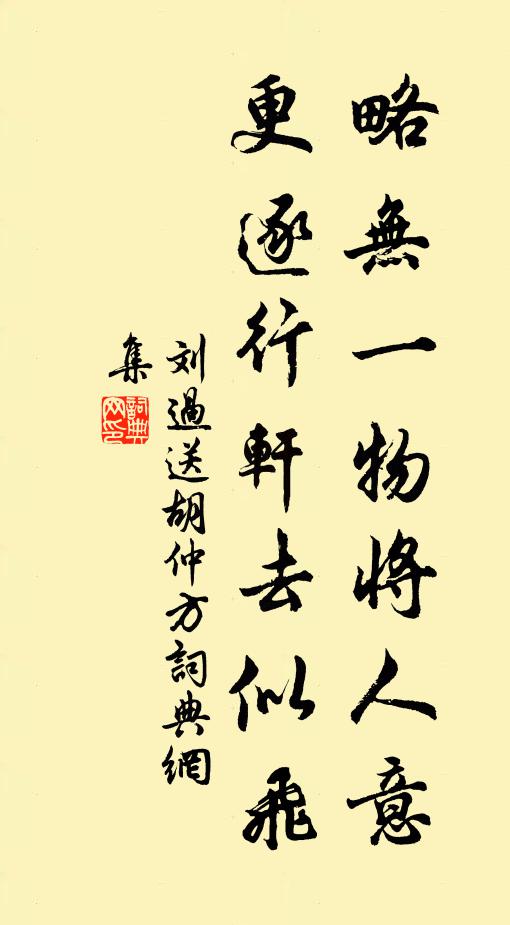 略無一物將人意
更逐行軒去似飛
刘過送胡仲方詞典網
集
詞典
网印